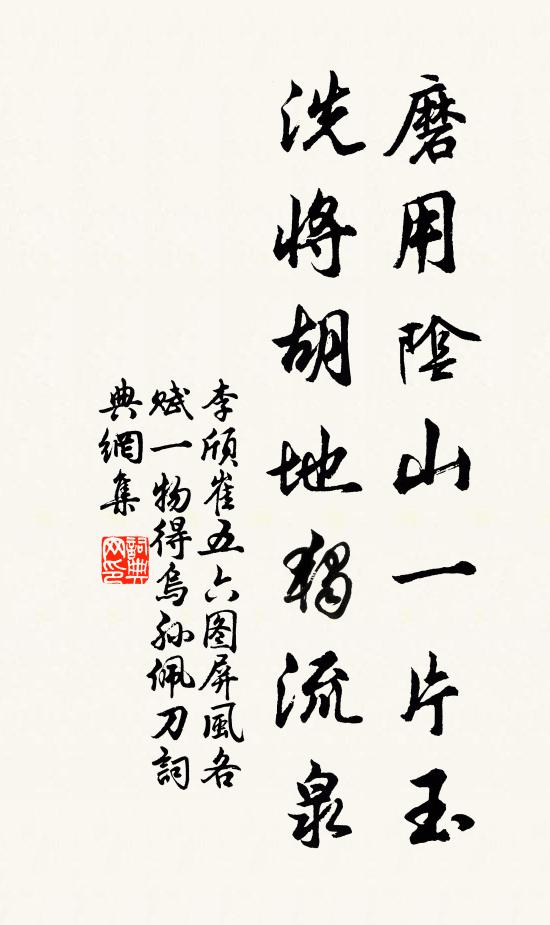 磨用陰山一片玉
洗將胡地獨流泉
李頎崔五六图屏風各
赋一物得烏孫佩刀詞
典網集
詞典
网印